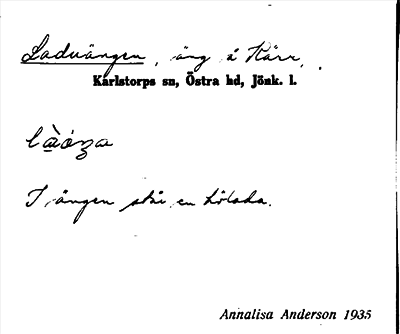 Ladvängen, äng å Kärr.
Karlstorps sn, Östra hd, Jönk. l.
I ängen står en hölada.
Annalisa Anderson 1935